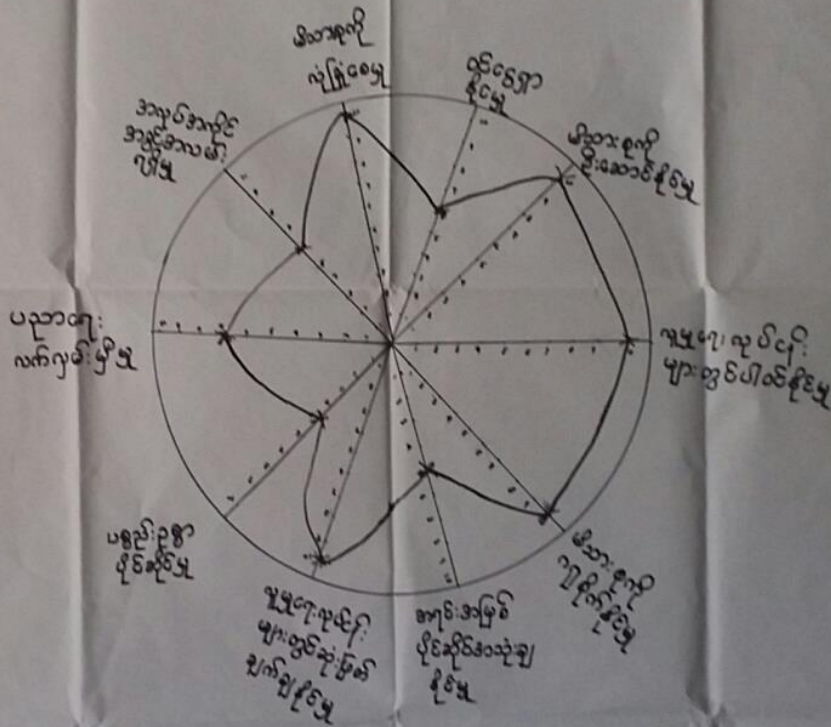 မိသားစုကို
လုံခြုံစေမှု
ဝင်ငွေရှာ
နိုင်မှု
မိသားစုကို
ဦးဆောင်နိုင်မှု
လူမှုရေးလုပ်ငန်း
များတွင်ပါဝင်နိုင်မှု
မိသားစုကို
ဂရုစိုက်နိုင်မှု
အရင်းအမြစ်
ပိုင်ဆိုင်အသုံးချ
နိုင်မှု
လူမှုရေးလုပ်ငန်း
များတွင်ဆုံးဖြတ်
ချက်ချနိုင်မှု
ပစ္စည်းဥစ္စာ
ပိုင်ဆိုင်မှု
ပညာရေး
လက်လှမ်းမှီမှု
အလုပ်အကိုင်
အခွင့်အလမ်း
ရရှိမှု